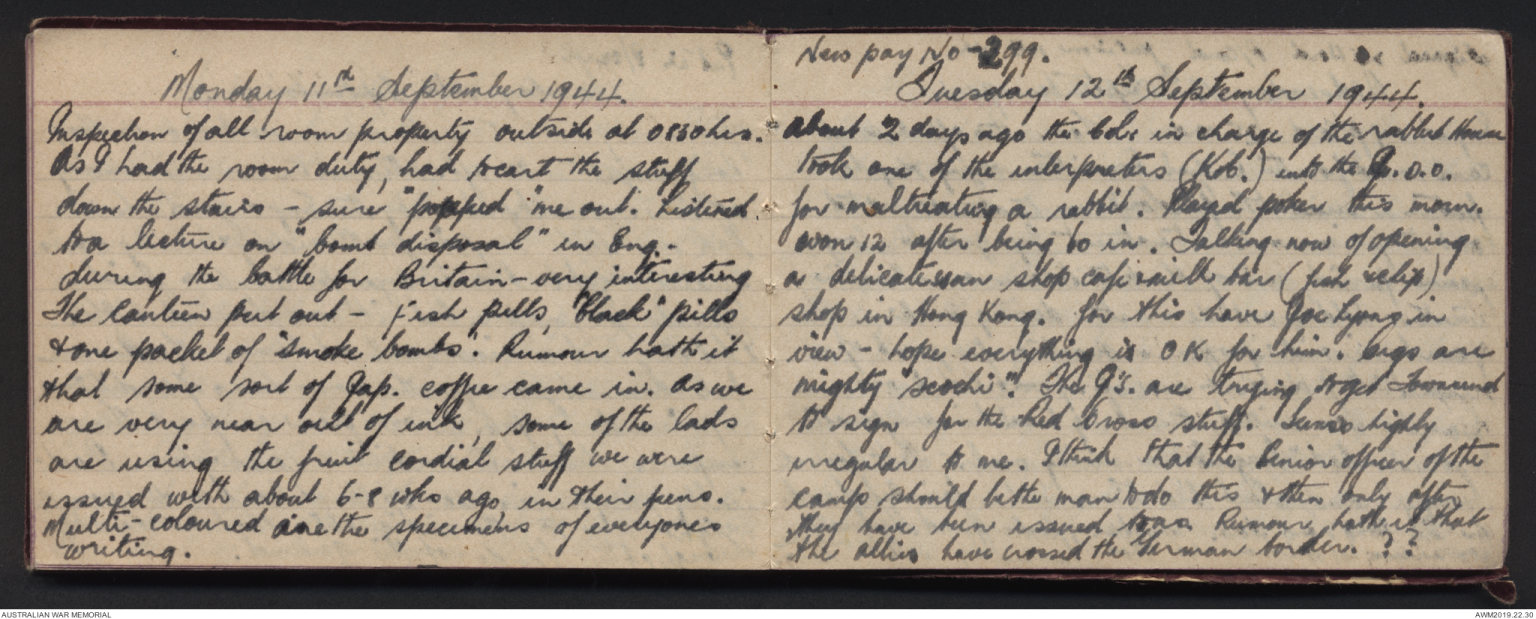 Monday 11th September 1944.
Inspection of all room property outside at 0830hrs.
As I had the room duty, had to cart the stuff
down the stairs - sure "popped" me out. Listened
to a lecture on "bomb disposal" in Eng.
during the battle for Britain - very interesting
The canteen put out - fish pills, "black" pills
& one packet of "smoke bombs". Rumour hath it
that some sort of Jap. coffee came in. As we
are very near out of ink, some of the lads
are using the fruit cordial stuff we were
issued with about 6-8 wks ago, in their pens.
Multi-coloured are the specimens of everyone's
writing.
New pay No - 299.
Tuesday 12th September 1944.
About 2 days ago the Col. in charge of the rabbit House
took one of the interpreters (Kob.) into the J.O.O.
for maltreating a rabbit. Played poker this morn.
won 12 after being 60 in. Talking now of opening
a delicatessan shop cafe & milk bar (fish & chip)
shop in Hong Kong. For this have Joe Lyong in
view - hope everything is OK for him. Cigs are
mighty "scochi". The J's. are trying to get Townsend
to sign for the Red Cross stuff. Seems highly
irregular to me. I think that the Senior officer of the
camp should be the man to do this & then only after
they have been issued to us. Rumour hath it that
the allies have crossed the German border. ??
AUSTRALIAN WAR MEMORIAL
AWM2019.22.30